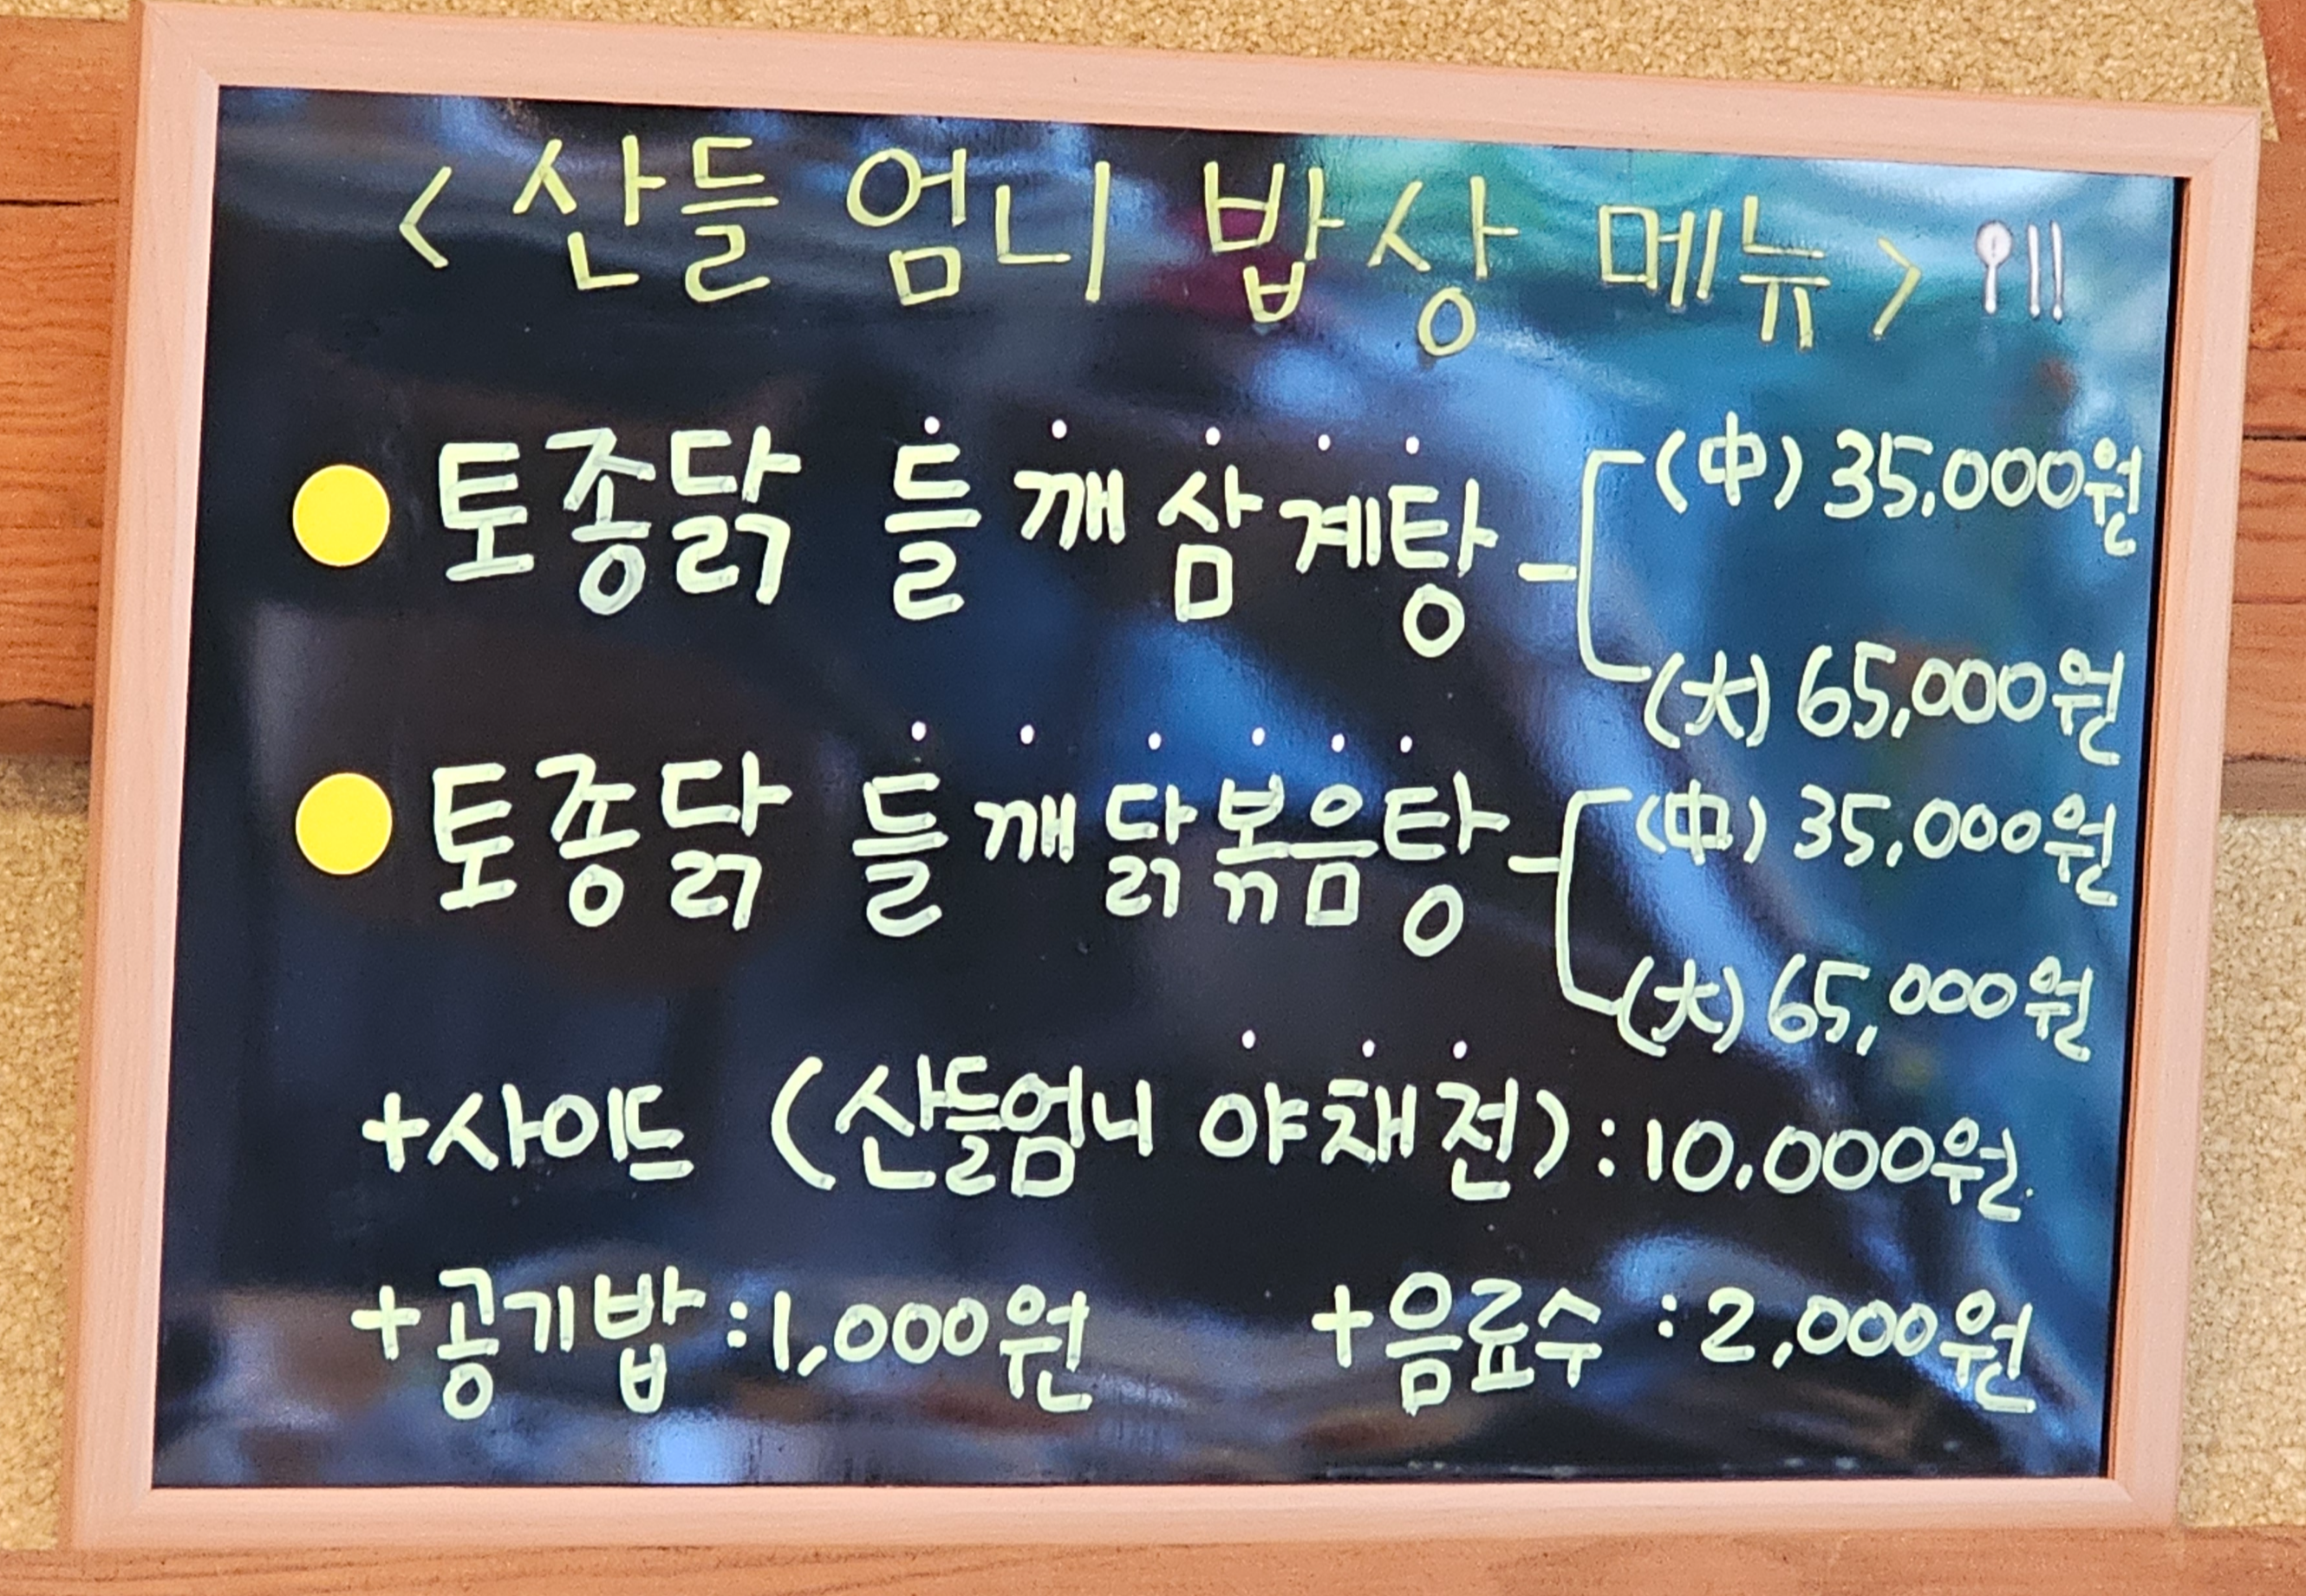 <산들 엄니 밥상 메뉴>
토종닭 들깨삼계탕 - (中) 35,000원
(大) 65,000원
토종닭 들깨닭볶음탕 - (中) 35,000원
(大) 65,000원
+사이드 (산들엄니 야채전) : 10,000원.
+공기밥 : 1,000원 +음료수 : 2,000원